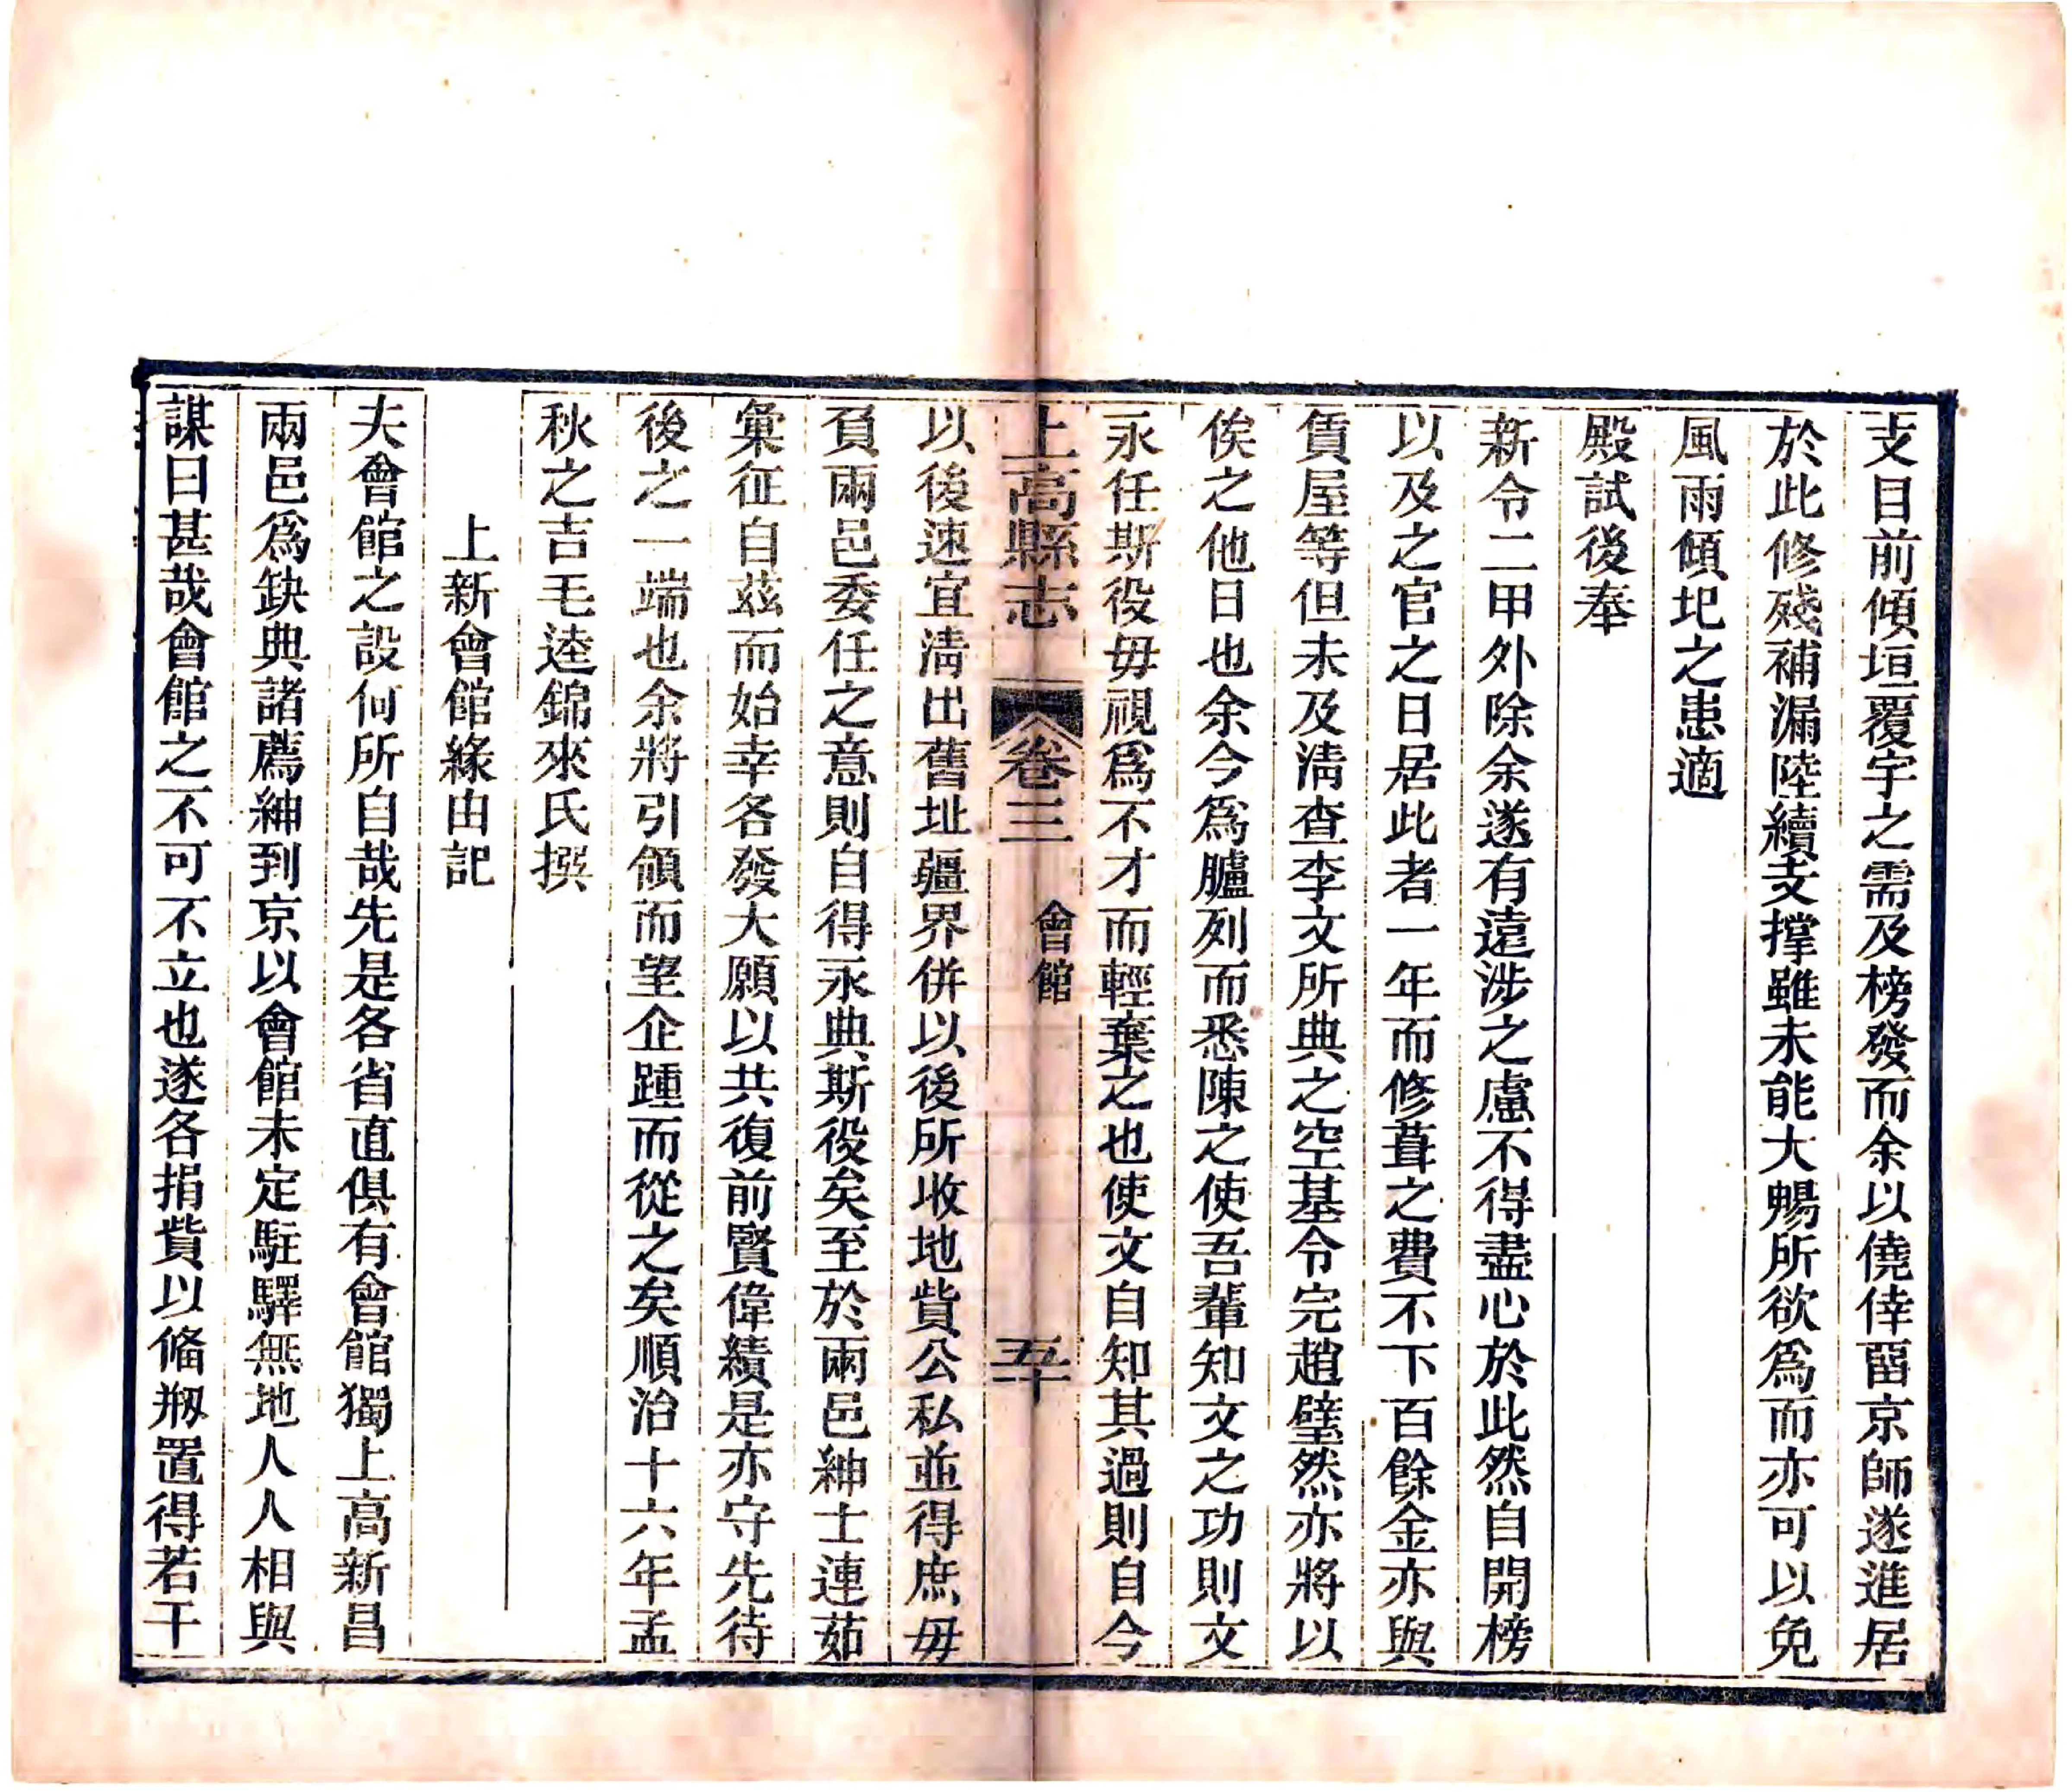 支目前傾垣覆宇之需及榜發而余以僥倖畱京師遂進居
於此修殘補漏陸續支撑雖未能大暢所欲爲而亦可以免
風雨傾圯之患適
殿試後奉
新令二甲外除余遂有遠涉之慮不得盡心於此然自開榜
以及之官之日居此者一年而修葺之費不下百餘金亦與
賃屋等但未及淸查李文所典之空基令完趙璧然亦將以
俟之他日也余今爲臚列而悉陳之使吾輩知文之功則文
永任斯役毋視爲不才而輕棄之也使文自知其過則自今
上高縣志 卷三 會館 五十
以後速宜淸出舊址疆界併以後所收地貲公私並得庶毋
負兩邑委任之意則自得永典斯役矣至於兩邑紳士連茹
彙征自茲而始幸各發大願以共復前賢偉績是亦守先待
後之一端也余將引領而望企踵而從之矣順治十六年孟
秋之吉毛逵錦來氏撰
上新會館緣由記
夫會館之設何所自哉先是各省直俱有會館獨上高新昌
兩邑爲缺典諸薦紳到京以會館未定駐驛無地人人相與
謀曰甚哉會館之不可不立也遂各捐貲以偹剏置得若干